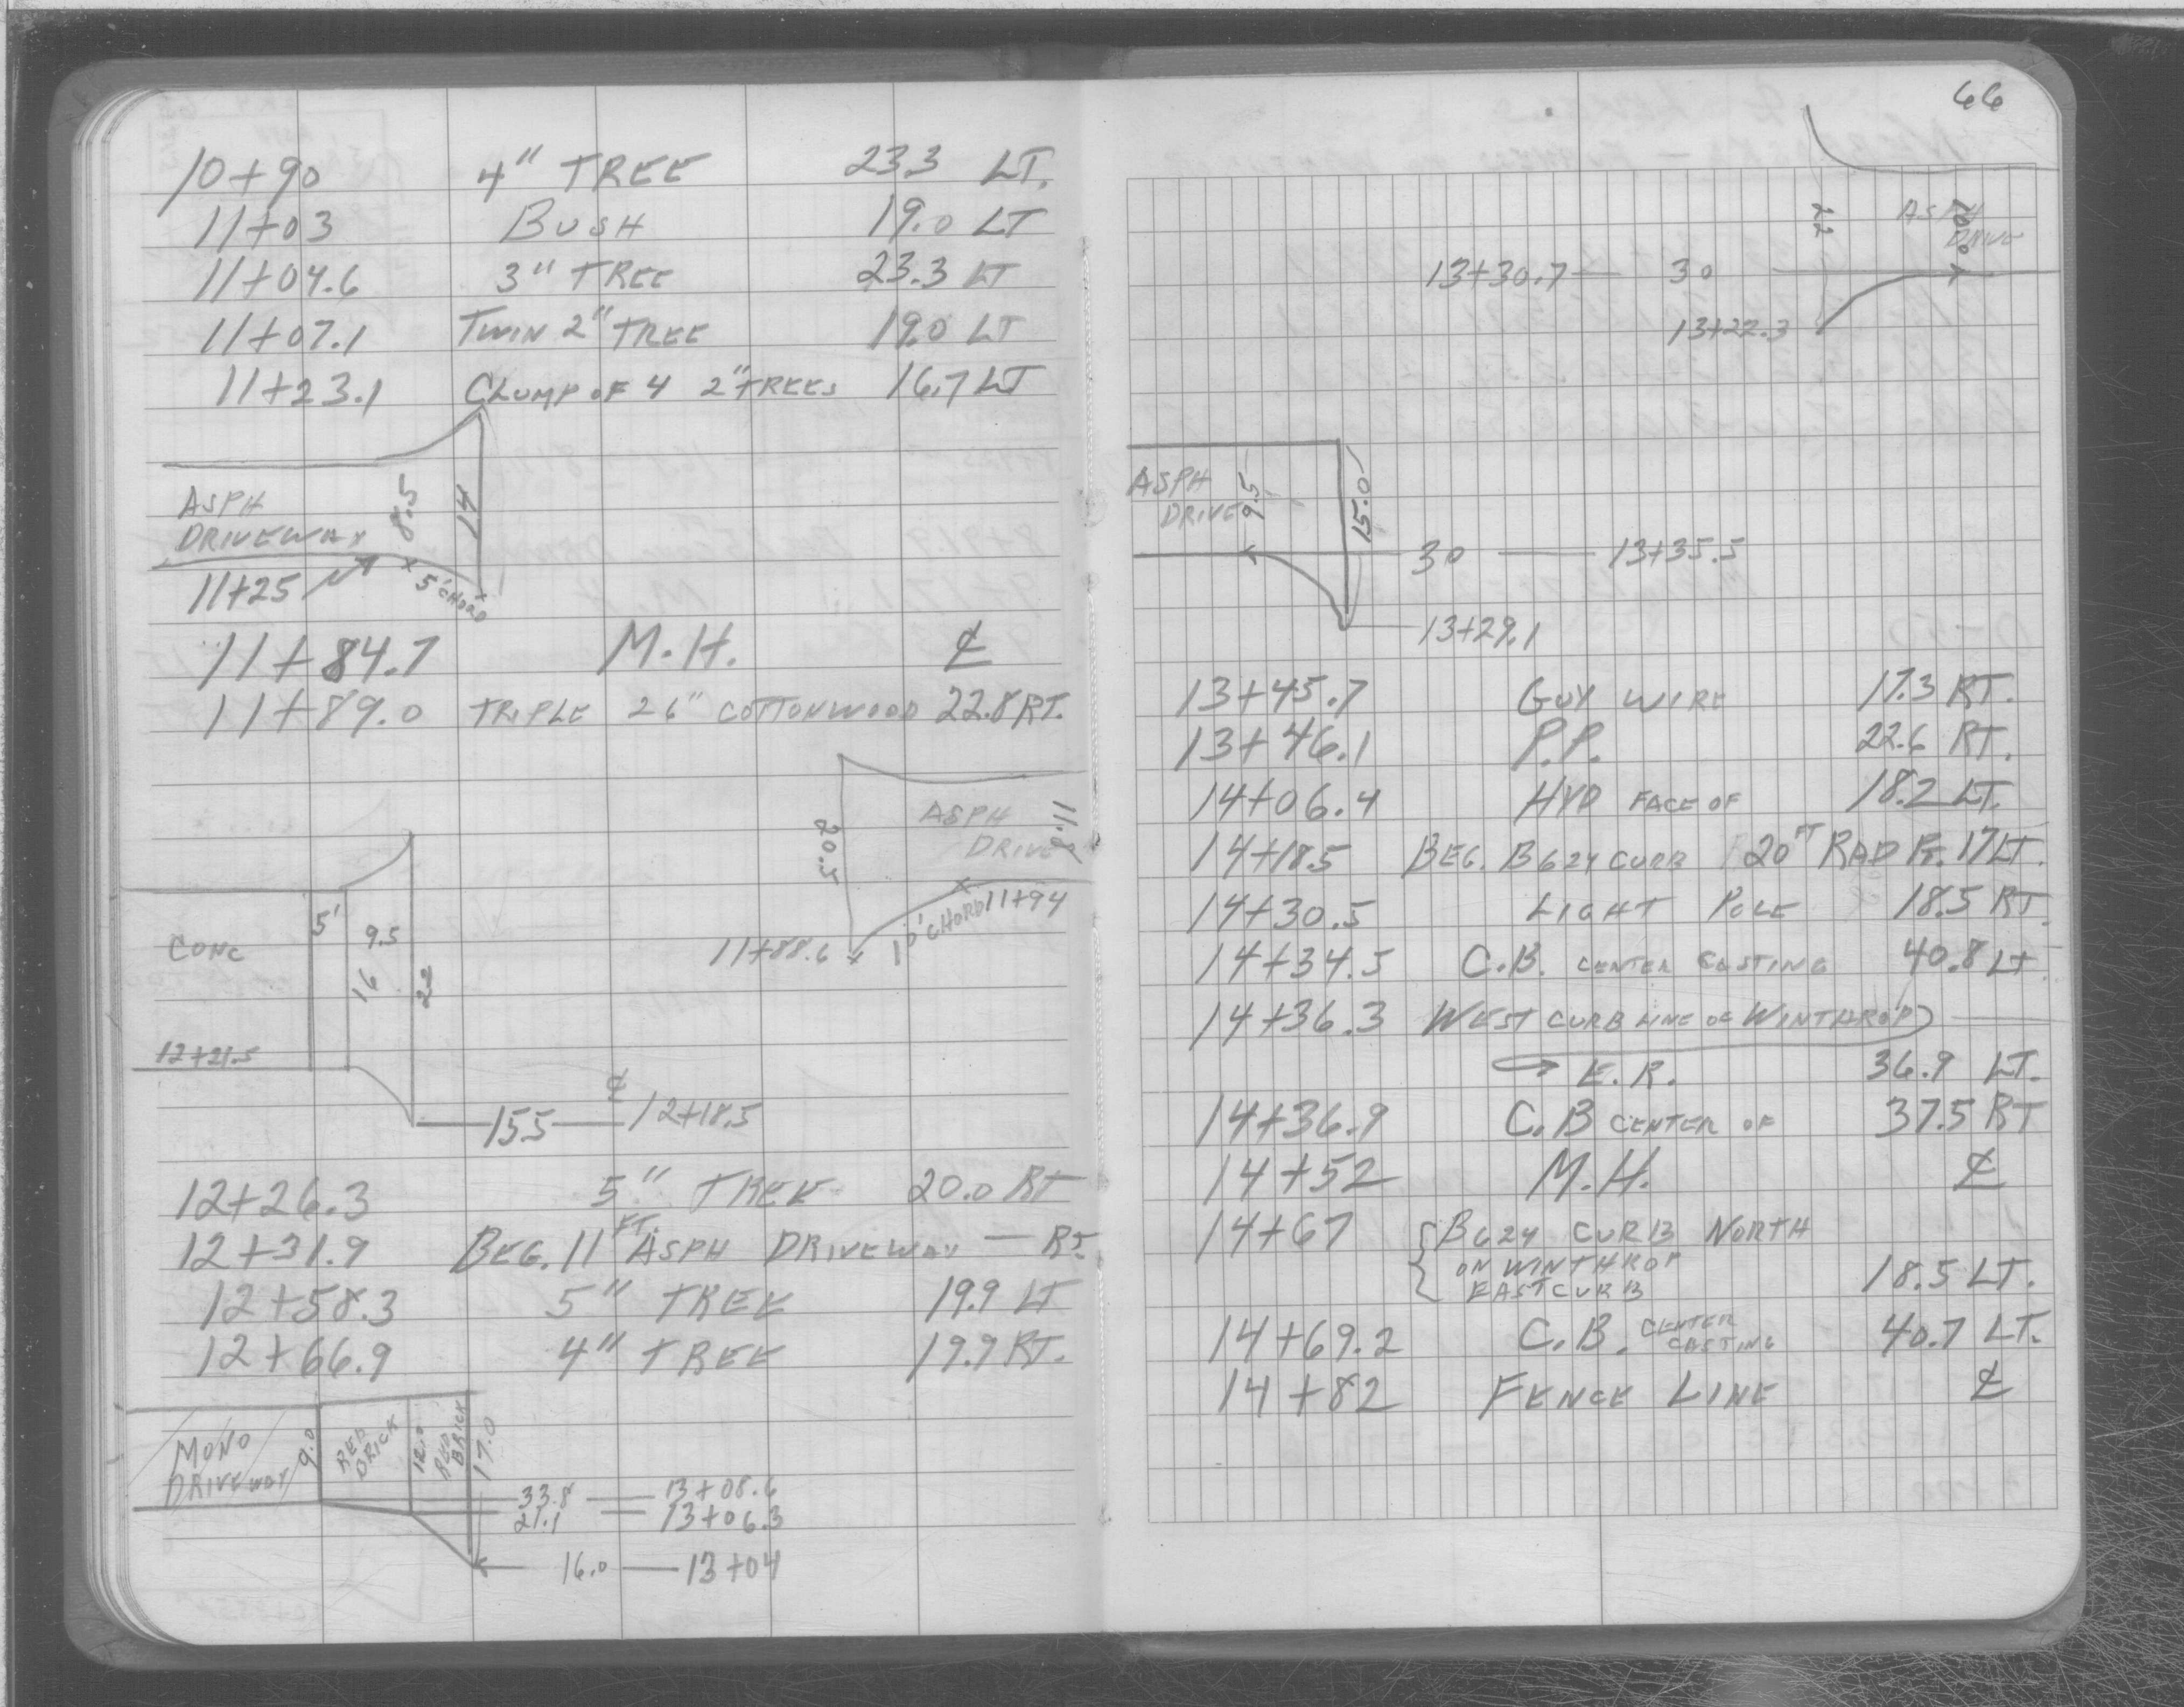 10+90 4" TREE 23.3 LT.
11+03 BUSH 19.0 LT
11+04.6 3" TREE 23.3 LT
11+07.1 TWIN 2" TREE 19.0 LT
11+23.1 CLUMP OF 4 2" TREES 16.7 LT
ASPH
DRIVEWAY
8.5
14
11+25
5' CHORD
11+84.7 M.H. ℄
11+89.0 TRIPLE 26" COTTONWOOD 22.8 RT.
20.5
ASPH
DRIVE
11.0
11+94
10' CHORD
11+88.6
CONC
5'
9.5
16
22
12+21.5
15.5 ℄ 12+18.5
12+26.3 5" TREE 20.0 RT
12+31.9 BEG. 11 FT. ASPH DRIVEWAY — RT.
12+58.3 5" TREE 19.9 LT
12+66.9 4" TREE 19.9 RT.
MONO
DRIVEWAY
9.0
RED
BRICK
12.0
RED
BRICK
17.0
33.8 — 13+08.6
21.1 — 13+06.3
16.0 — 13+04
66
22
ASPH
DRIVE
10.0
13+30.7 — 30
13+22.3
ASPH
DRIVE
9.5
15.0
30 — 13+35.5
13+29.1
13+45.7 GUY WIRE 17.3 RT.
13+46.1 P.P. 22.6 RT.
14+06.4 HYD FACE OF 18.2 LT.
14+18.5 BEG. B624 CURB 20 FT RAD PT. 17 LT.
14+30.5 LIGHT POLE 18.5 RT.
14+34.5 C.B. CENTER CASTING 40.8 LT.
14+36.3 WEST CURB LINE OF WINTHROP
E.R. 36.9 LT.
14+36.9 C.B CENTER OF 37.5 RT
14+52 M.H. ℄
14+67 B624 CURB NORTH
ON WINTHROP
EAST CURB 18.5 LT.
14+69.2 C.B. CENTER CASTING 40.7 LT.
14+82 FENCE LINE ℄